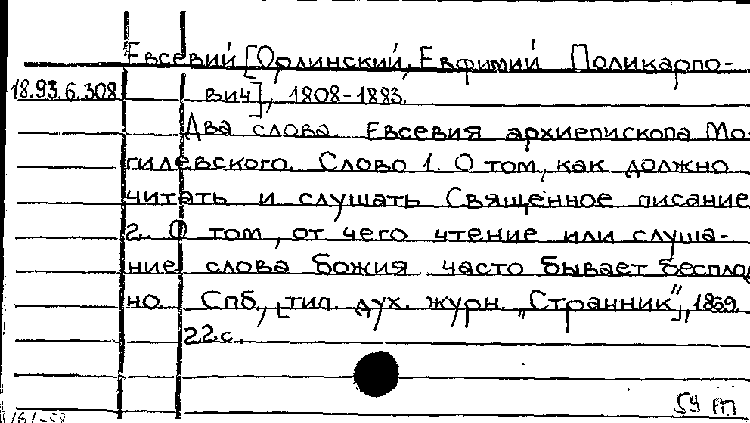 Евсевий [Орлинский, Евфимий Поликарпо-
18.93.6.308 вич], 1808-1883.
Два слова Евсевия архиепископа Мо-
гилевского. Слово 1. О том, как должно
читать и слушать Священное писание
2. О том, от чего чтение или слуша-
ние слова божия часто бывает бесплод
но. Спб., [тип. дух. журн. „Странник"], 1869.
22 с.